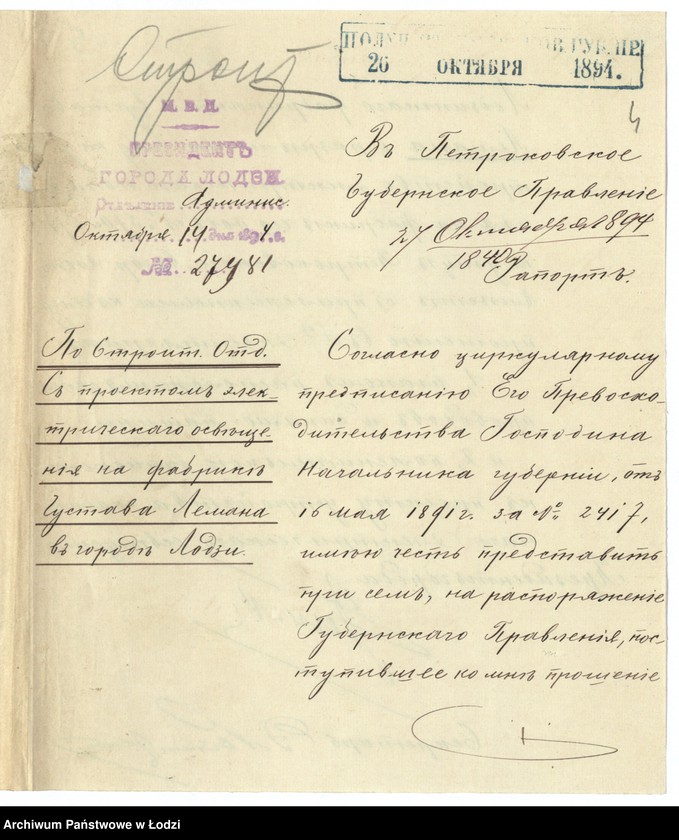 Строит
26 ОКТЯБРЯ 1894.
4
М. В. Д.
ПРЕЗИДЕНТЪ
ГОРОДА ЛОДЗИ.
Отдѣленіе Админис.
Октября 14 дня 1894 г.
№ 27981
Въ Петроковское
Губернское Правленіе
27 Октября 1894
Рапортъ.
По Строит. Отд.
Съ проектомъ элек-
трическаго освѣще-
нія на фабрикѣ
Густава Лемана
въ городѣ Лодзи.
Согласно циркулярному
предписанію Его Превосхо-
дительства Господина
Начальника губерніи, отъ
16 мая 1891 г. за № 2417,
имѣю честь представить
при семъ, на распоряженіе
Губернскаго Правленія, пос-
тупившее ко мнѣ прошеніе
Archiwum Państwowe w Łodzi